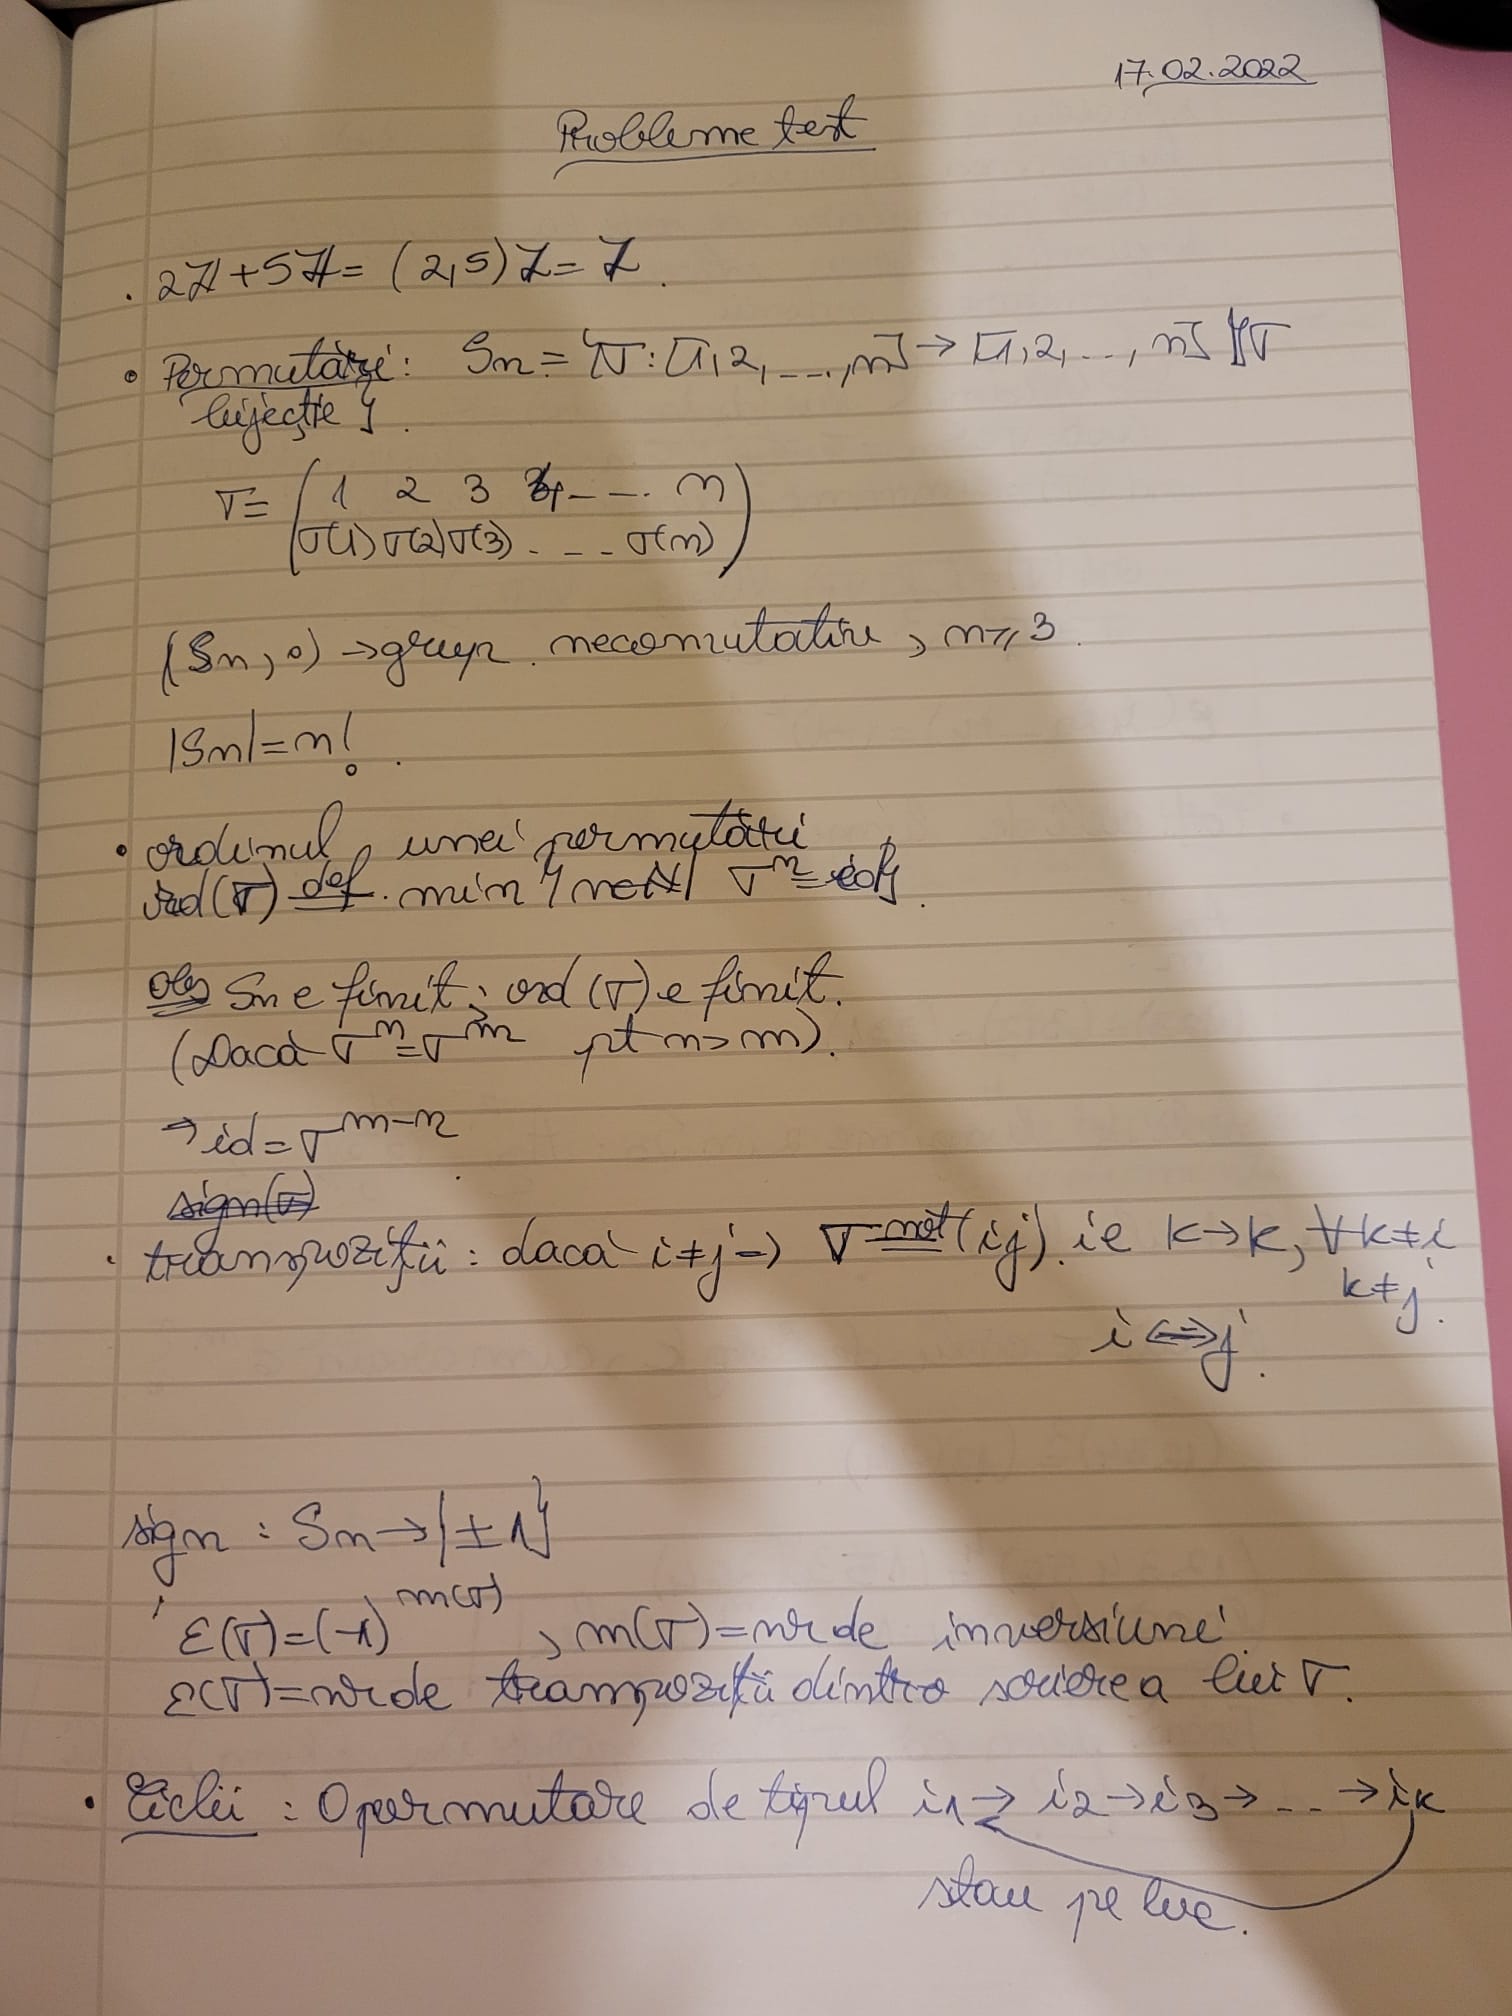 17.02.2022
Probleme test
. 2ℤ+5ℤ= (2,5)ℤ=ℤ.
• Permutări: Sn = {σ: [1,2,...,n] → [1,2,...,n] | σ
bijecție}.
σ= (1 2 3 4 ... n
σ(1) σ(2) σ(3) ... σ(n))
(Sn, ∘) → grup necomutativ, n≥3.
|Sn|=n!.
• ordinul unei permutări
ord(σ) def. min {n∈ℕ | σ^n=id}.
Obs Sn e finit; ord(σ) e finit.
(Dacă σ^n=σ^m pt n>m).
→ id=σ^m-n
sign(σ)
. transpoziții: dacă i≠j → σ not (ij). ie k→k, ∀k≠i
k≠j.
i⇔j.
sign: Sn→{±1}
ε(σ)=(-1)^m(σ) , m(σ)=nr de inversiuni
ε(σ)=nr de transpoziții dintro scrierea lui σ.
• Ciclii: O permutare de tipul i1→i2→i3→...→ik
stau pe loc.